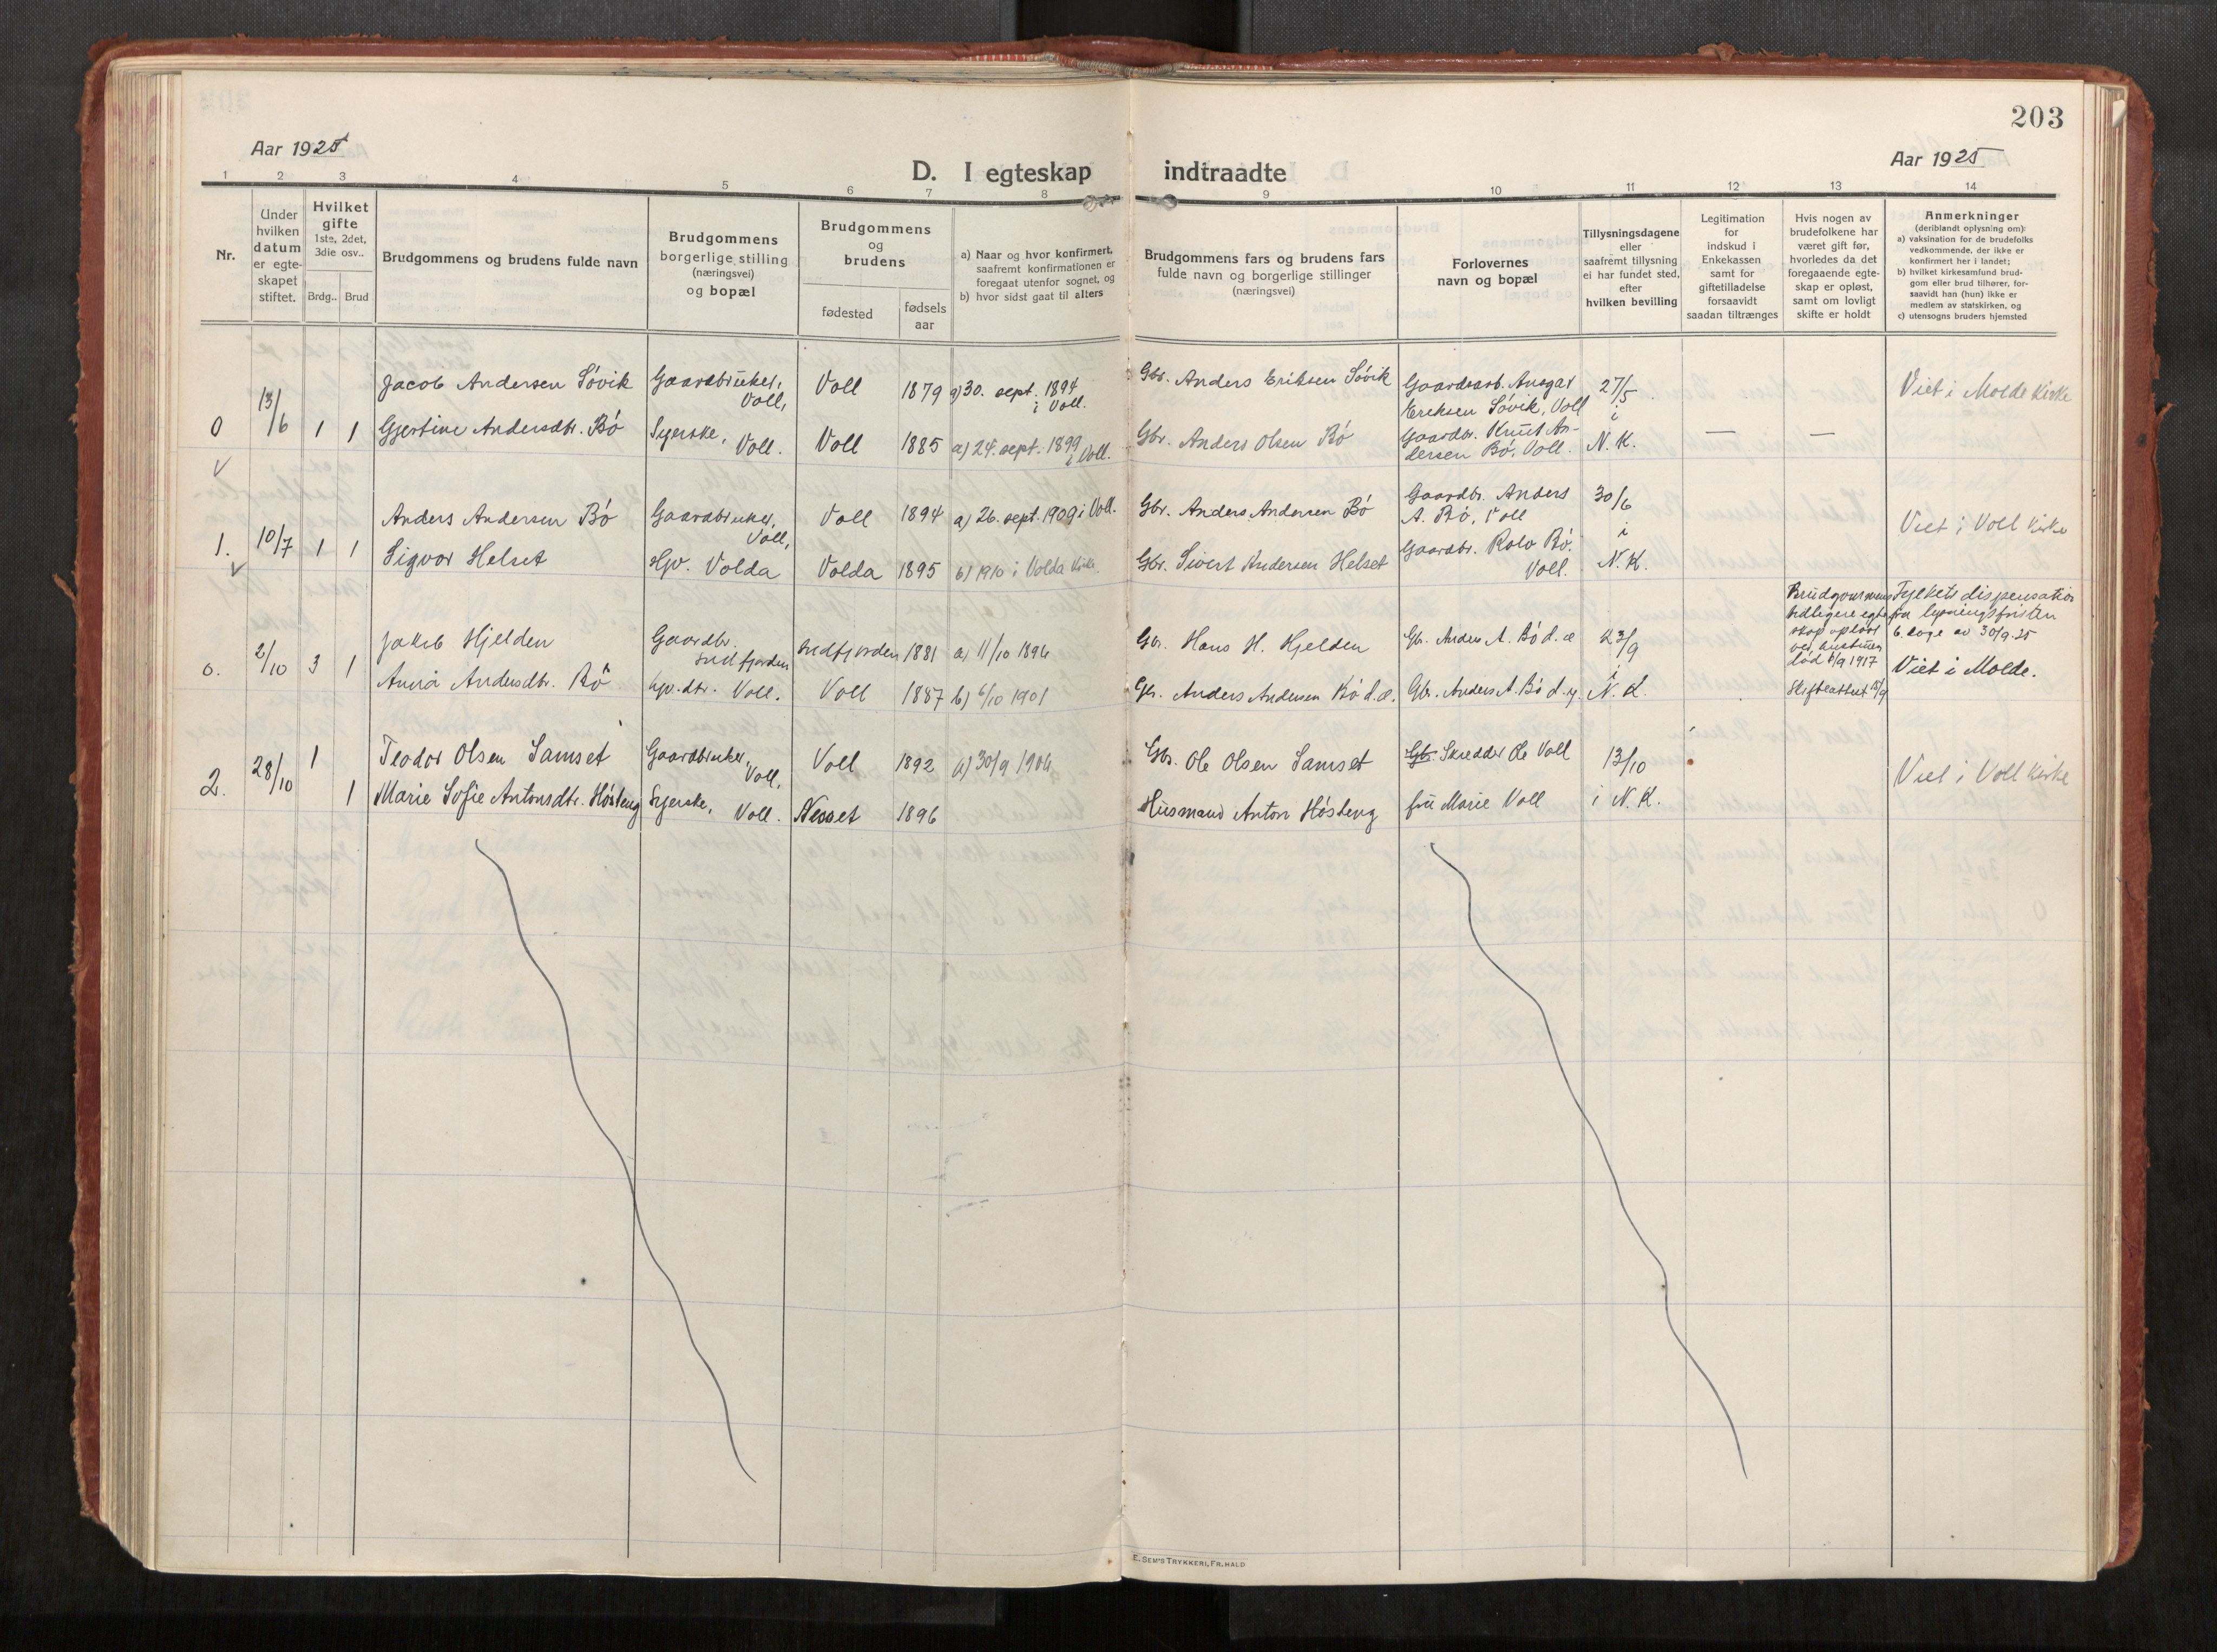 203
Aar 1925
Aar 1925
D. I egteskap indtraadte
1 2 3 4 5 6 7 8 9 10 11 12 13 14
Nr.
Under
hvilken
datum
er egte-
skapet
stiftet.
Hvilket
gifte
1ste, 2det,
3die osv..
Brdg.. Brud
Brudgommens og brudens fulde navn
Brudgommens
borgerlige stilling
(næringsvei)
og bopæl
Brudgommens
og
brudens
fødested
fødsels
aar
a) Naar og hvor konfirmert,
saafremt konfirmationen er
foregaat utenfor sognet, og
b) hvor sidst gaat til alters
Brudgommens fars og brudens fars
fulde navn og borgerlige stillinger
(næringsvei)
Forlovernes
navn og bopæl
Tillysningsdagene
eller
saafremt tillysning
ei har fundet sted,
efter
hvilken bevilling
Legitimation
for
indskud i
Enkekassen
samt for
giftetilladelse
forsaavidt
saadan tiltrænges
Hvis nogen av
brudefolkene har
været gift før,
hvorledes da det
foregaaende egte-
skap er opløst,
samt om lovligt
skifte er holdt
Anmerkninger
(deriblandt oplysning om):
a) vaksination for de brudefolks
vedkommende, der ikke er
konfirmert her i landet;
b) hvilket kirkesamfund brud-
gom eller brud tilhører, for-
saavidt han (hun) ikke er
medlem av statskirken, og
c) utensogns bruders hjemsted
0
13/6
1 1
Jacob Andersen Søvik
Gaardbruker,
Voll,
Voll
1879
a) 30. sept. 1894
i Voll.
Gbr. Anders Eriksen Søvik
Gaardsarb. Ansgar
Eriksen Søvik, Voll
27/5
i
N. K.
Viet i Molde kirke
Gjertine Andersdtr. Bø
Syerske,
Voll.
Voll
1885
a) 24. sept. 1899
i Voll.
Gbr. Anders Olsen Bø
Gaardbr. Knut An-
dersen Bø, Voll.
— —
1.
10/7
1 1
Anders Andersen Bø
Gaardbruker,
Voll,
Voll
1894
a) 26. sept. 1909 i Voll.
Gbr. Anders Andersen Bø
Gaardbr. Anders
A. Bø, Voll
30/6
i
N. K.
Viet i Voll kirke
Sigvor Helset
Hp. Volda
Volda
1895
b) 1910 i Volda kirke.
Gbr. Sivert Andersen Helset
Gaardbr. Rolv Bø.
Voll.
0.
2/10
3 1
Jakob Hjelden
Gaardbr.
Indfjorden
Indfjorden
1881
a) 11/10 1896
Gbr. Hans H. Hjelden
Gb. Anders A. Bø d. æ
23/9
i
N. K.
Brudgommens
tidligere egte-
skap opløst
ved hustruens
død 8/9 1917
Skifteattest 18/9
Fylkets dispensation
fra lysningsfristen
6 dage av 30/9-25
Viet i Molde.
Anna Andersdtr. Bø
Gp.dtr. Voll.
Voll
1887
b) 6/10 1901
Gbr. Anders Andersen Bø d. æ.
Gbr. Anders A. Bø d. y.
2.
28/10
1
Teodor Olsen Samset
Gaardbruker,
Voll,
Voll
1892
a) 30/9 1906
Gbr. Ole Olsen Samset
Gbr. Skredder Ole Voll
13/10
i N. K.
Viet i Voll kirke
1
Marie Sofie Antonsdtr. Høsteng
Syerske,
Voll.
Nesset
1896
Husmand Anton Høsteng
fru Marie Voll
E. SEM'S TRYKKERI, FR. HALD